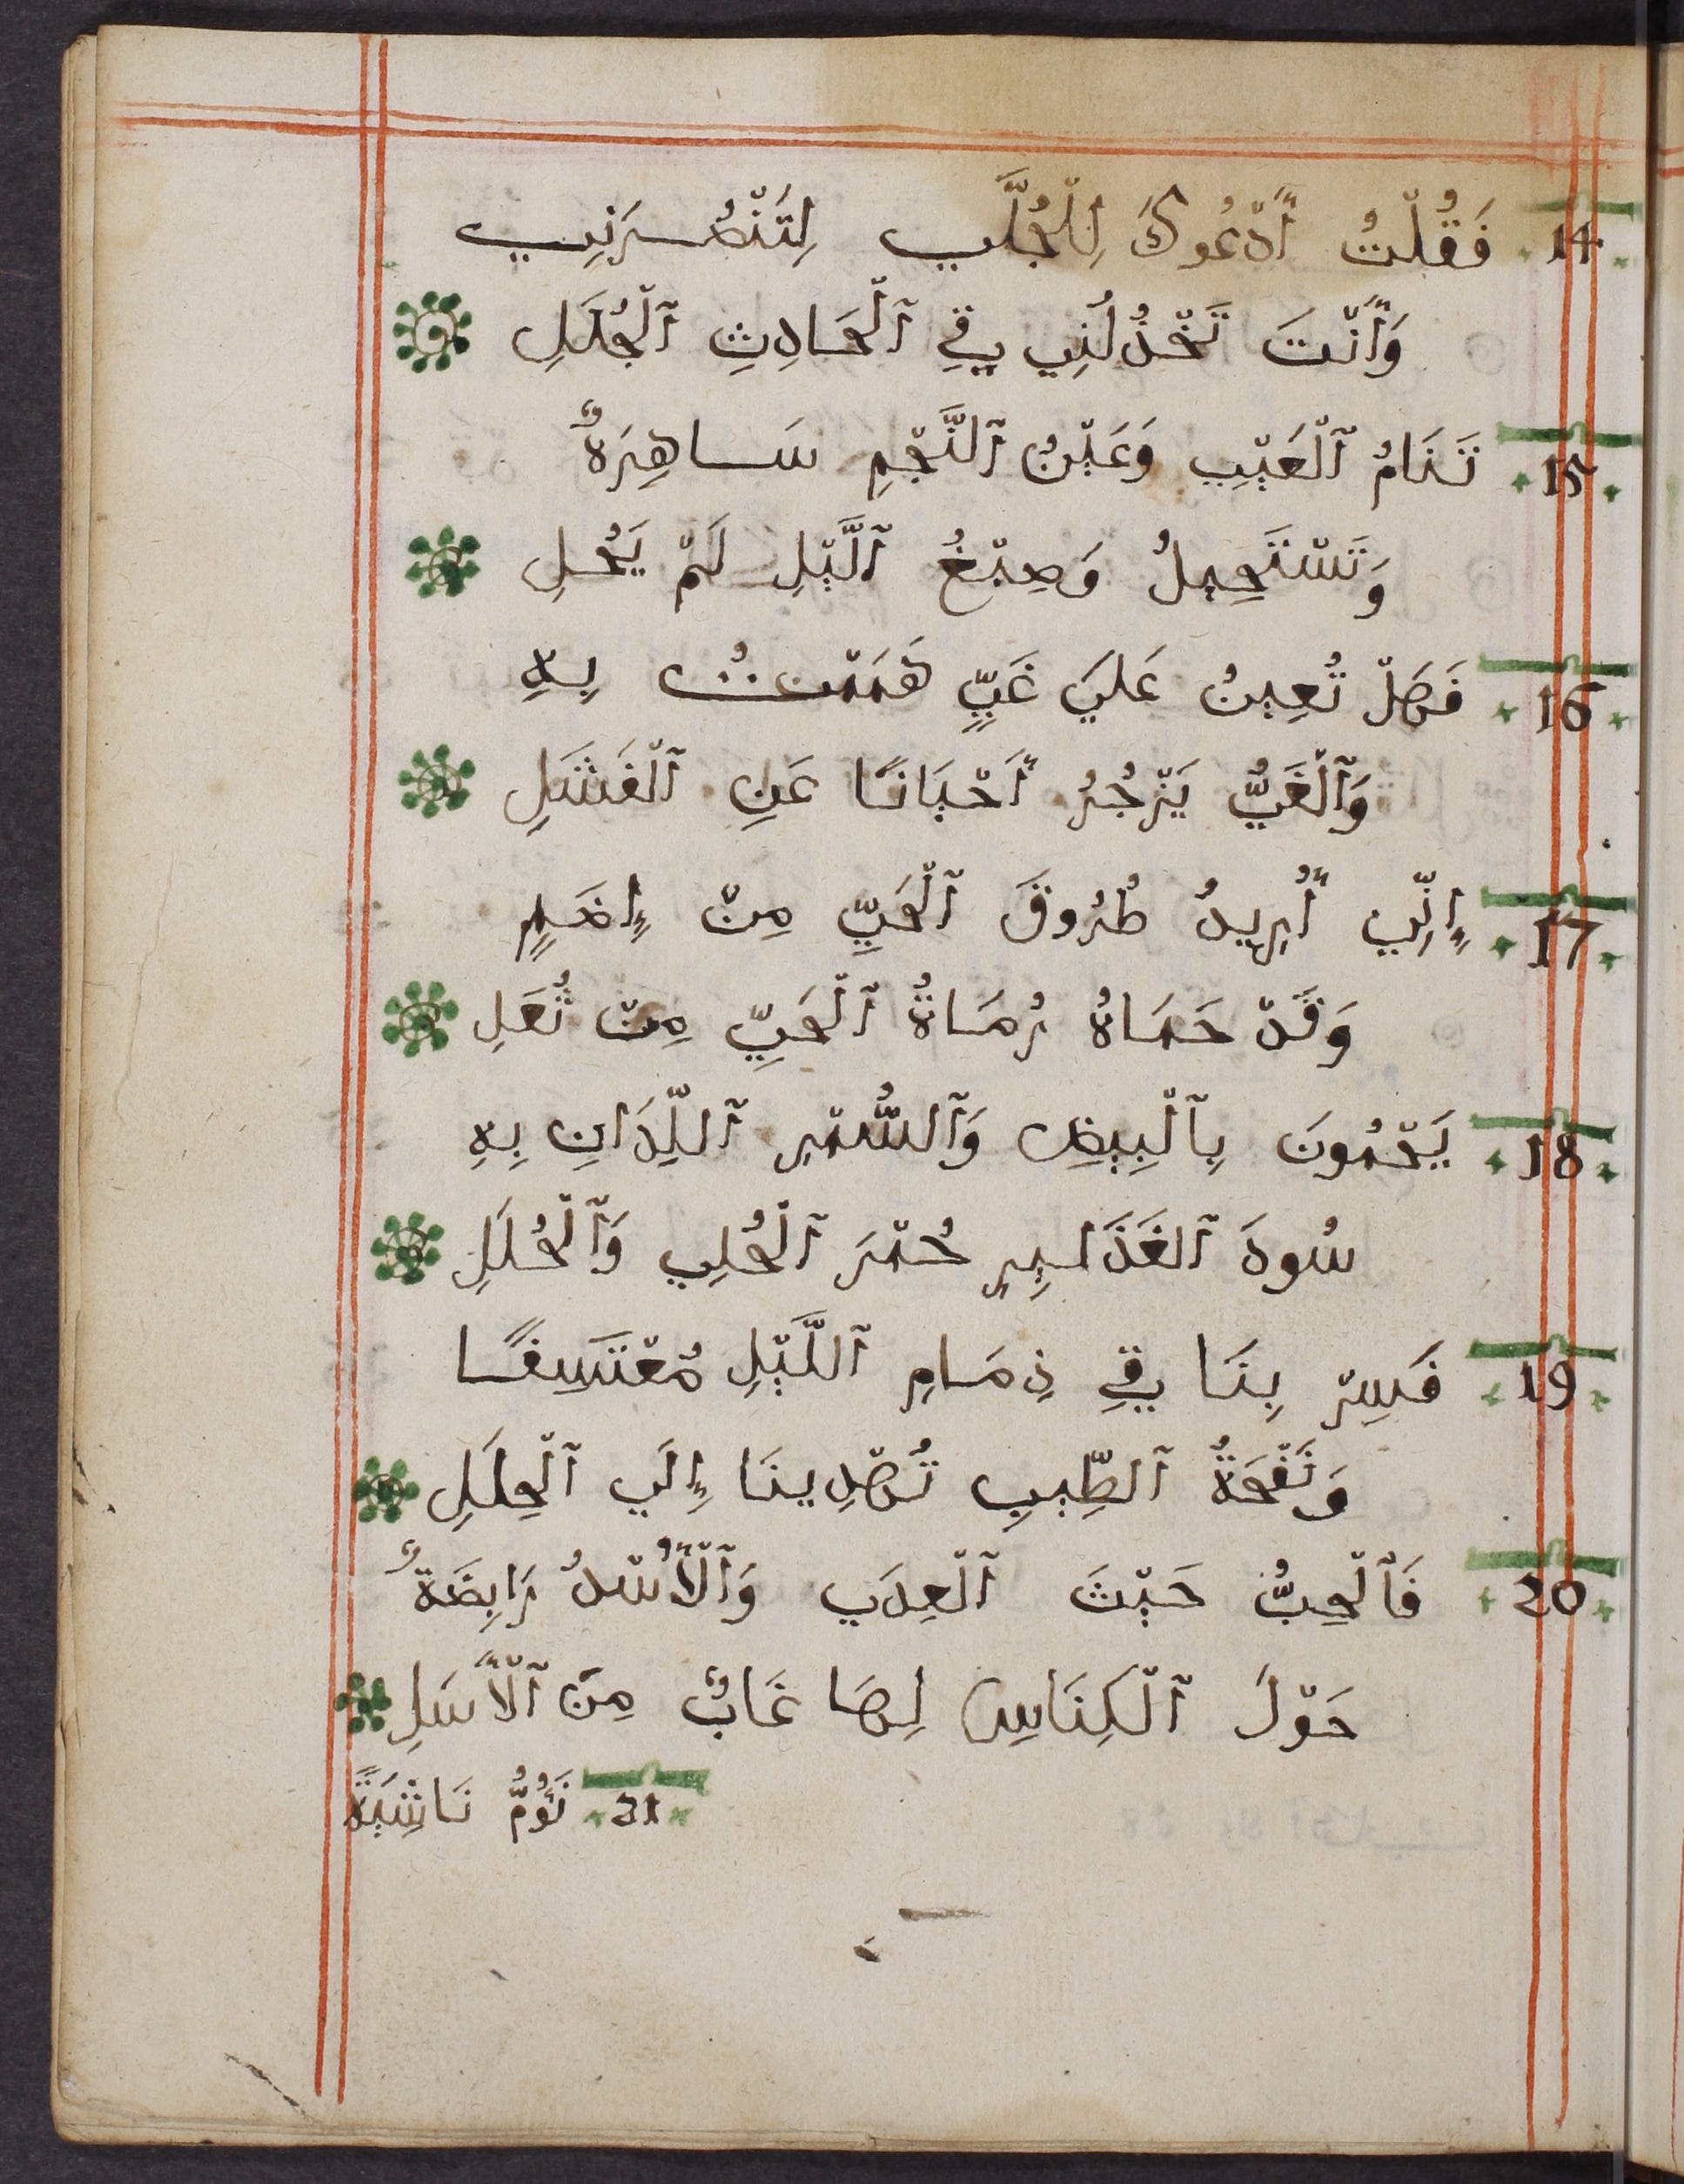 14 فَقُلْتُ أَدْعُوكَ لِلْجُلَّى لِتَنْصُرَنِي
وَأَنْتَ تَخْذُلُنِي فِي ٱلْحَادِثِ ٱلْجُلَلِ
15 تَنَامُ ٱلْعَيْنِ وَعَيْنُ ٱلنَّجْمِ سَاهِرَةٌ
وَتَسْتَحِيلُ وَصِبْغُ ٱللَّيْلِ لَمْ يَحُلِ
16 فَهَلْ تُعِينُ عَلَى غَيٍّ هَمَمْتُ بِهِ
وَٱلْغَيُّ يَزْجُرُ أَحْيَانًا عَنِ ٱلْفَشَلِ
17 إِنِّي أُرِيدُ طُرُوقَ ٱلْحَيِّ مِنْ إِضَمٍ
وَقَدْ حَمَاهُ رُمَاةُ ٱلْحَيِّ مِنْ ثُعَلِ
18 يَحْمُونَ بِٱلْبِيضِ وَٱلسُّمْرِ ٱللِّدَانِ بِهِ
سُودَ ٱلْغَدَايِرِ حُمْرَ ٱلْحُلِي وَٱلْحُلَلِ
19 فَسِرْ بِنَا فِي ذِمَامِ ٱللَّيْلِ مُعْتَسِفًا
وَنَفْحَةُ ٱلطِّيبِ تُهْدِينَا إِلَى ٱلْحِلَلِ
20 فَٱلْحِبُّ حَيْثَ ٱلْعِدَى وَٱلْأُسْدُ رَابِضَةٌ
حَوْلَ ٱلْكِنَاسِ لِهَا غَابٌ مِنَ ٱلْأَسَلِ
21 نَؤُمُّ نَاشِيَةً